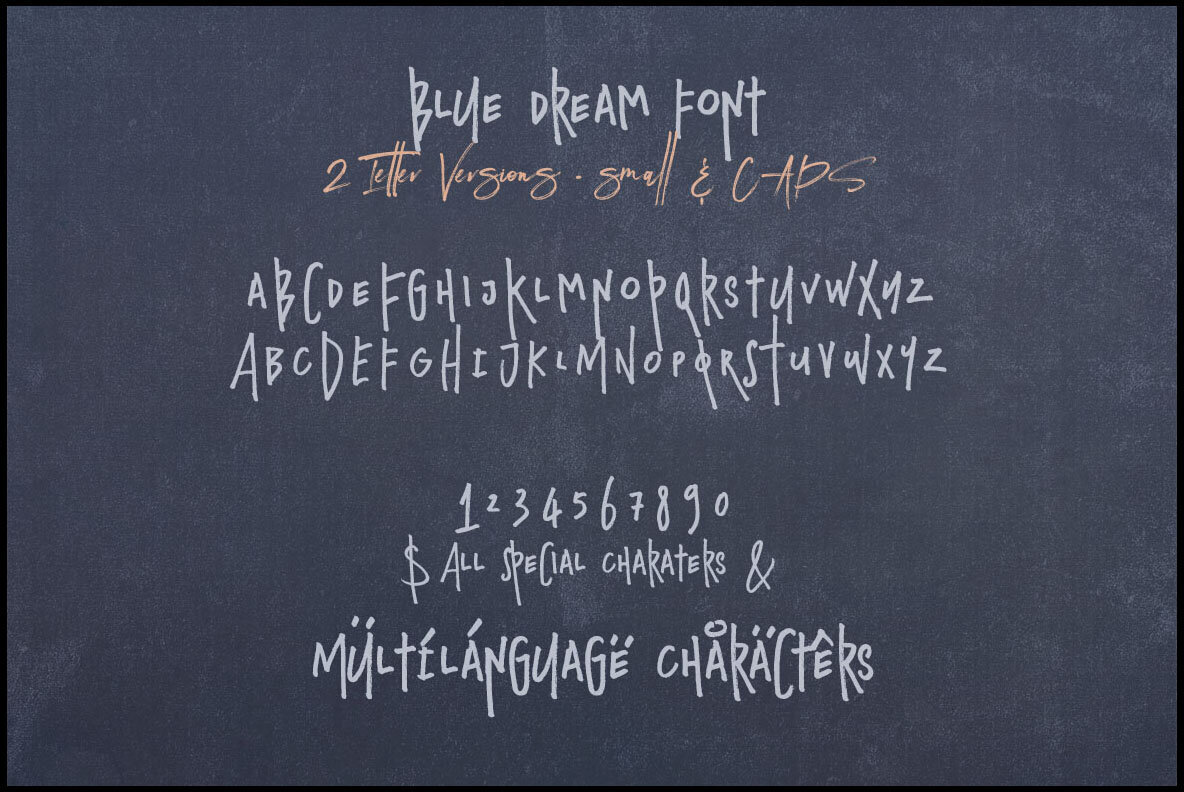 BLUE DREAM FONT
2 letter Versions - small & CAPS
ABCDEFGHIJKLMNOPQRSTUVWXYZ
ABCDEFGHIJKLMNOPQRSTUVWXYZ
1234567890
$ ALL SPECIAL CHARATERS &
MÜLTÉLÁNGUAGË CHÅRÄCTÊRS